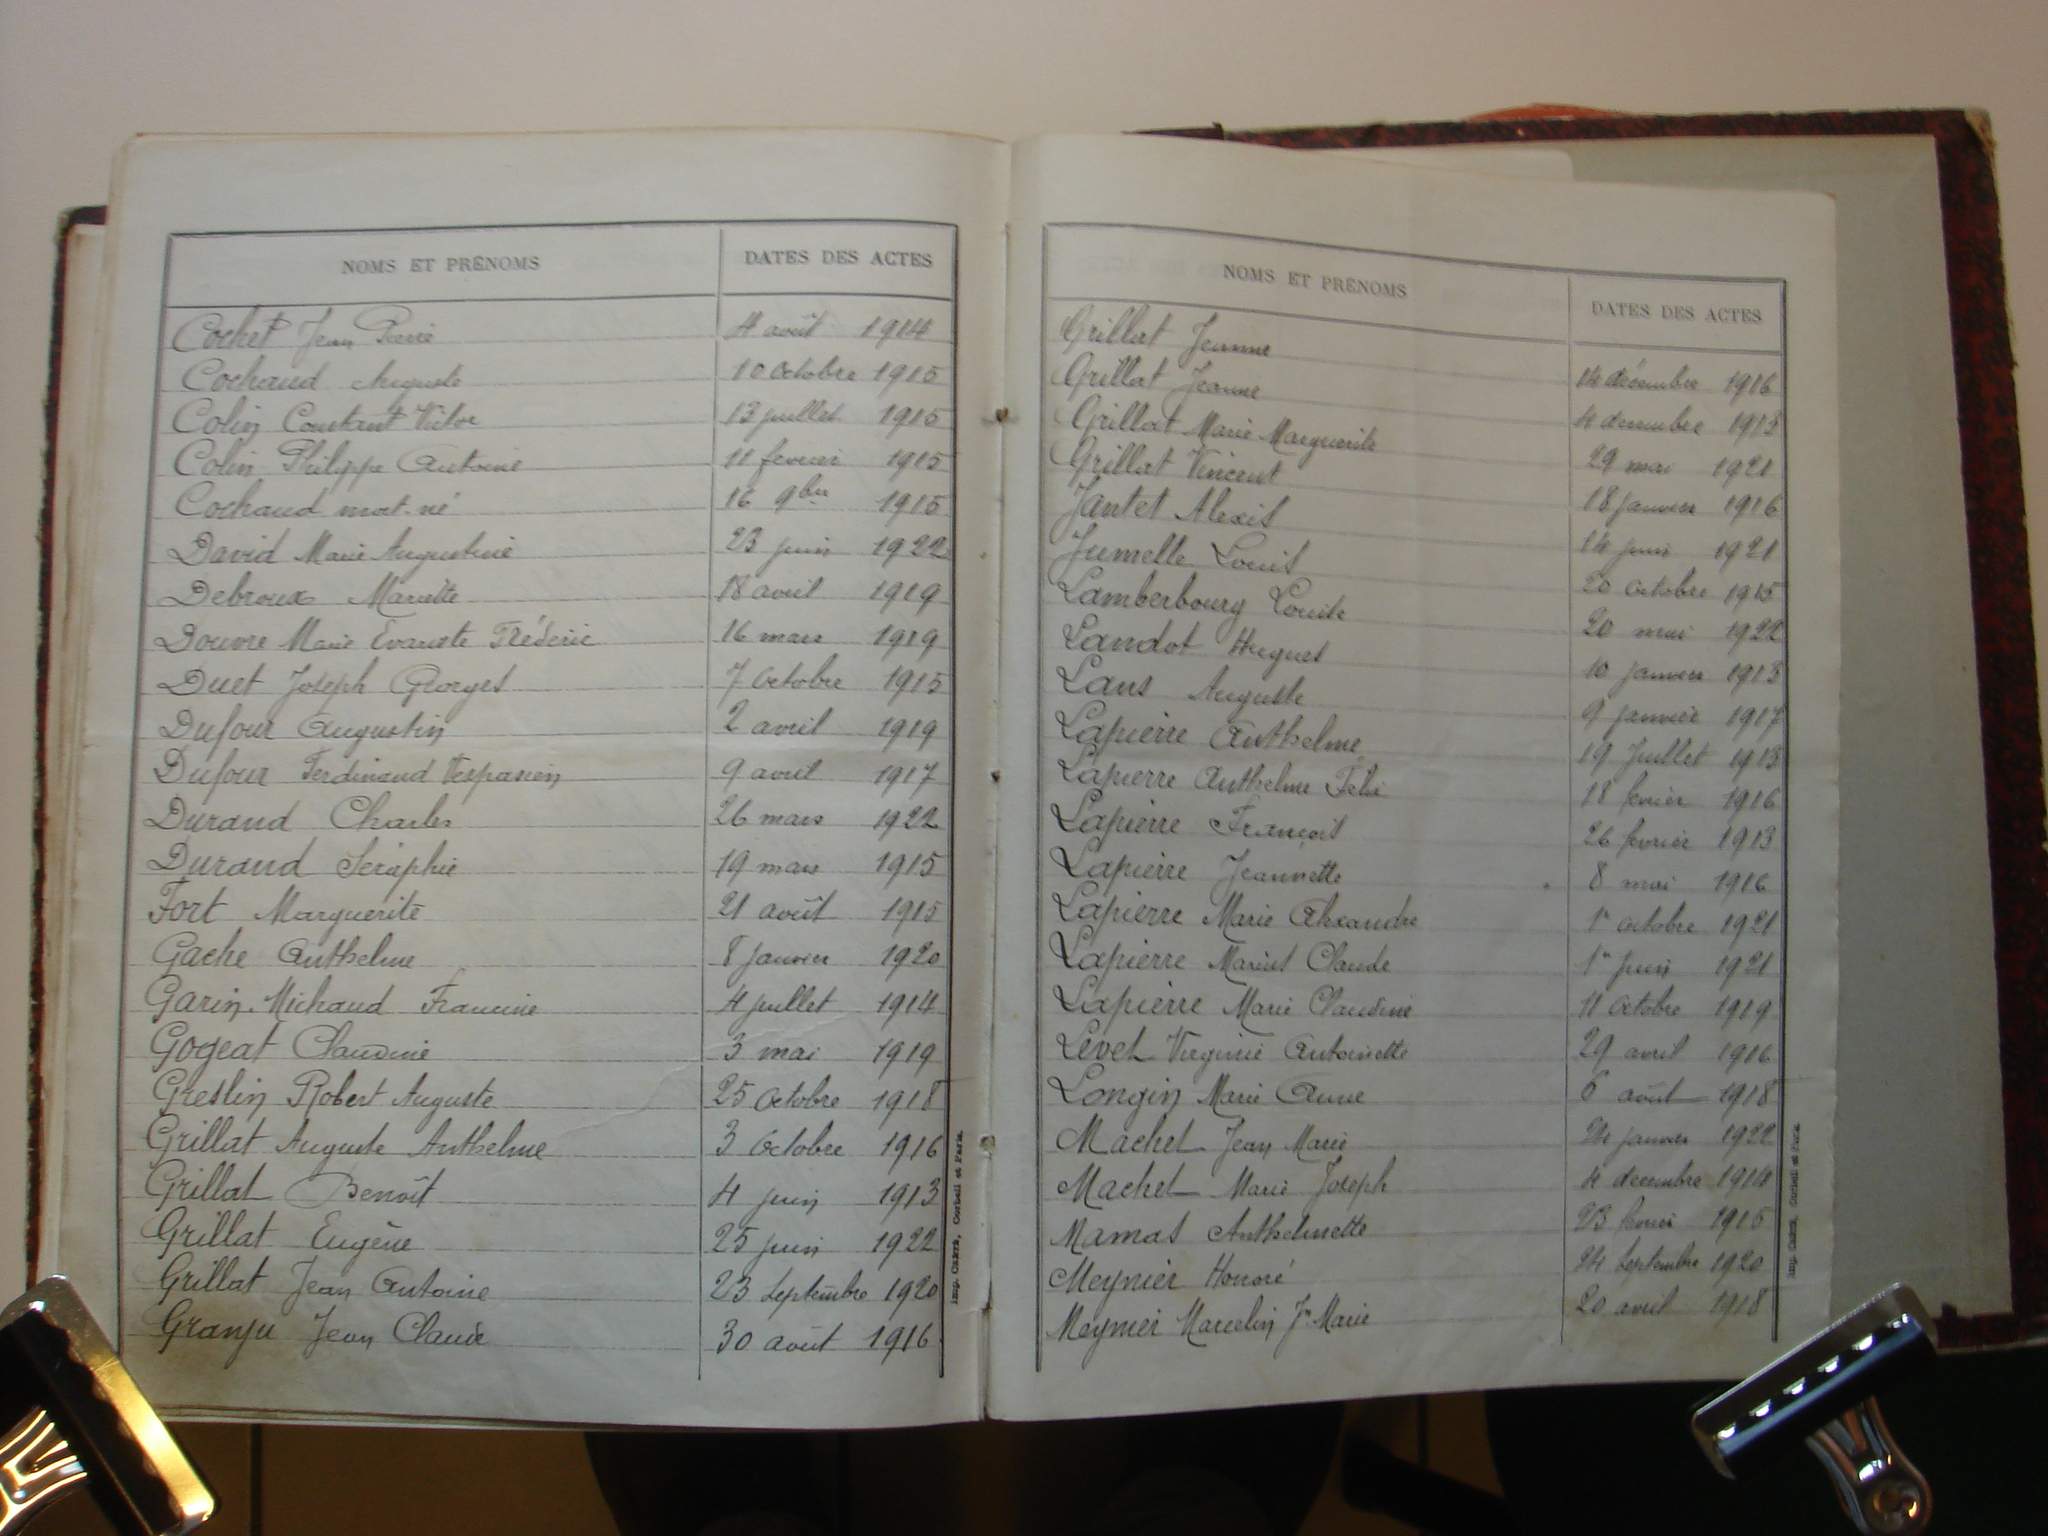 NOMS ET PRÉNOMS DATES DES ACTES
Cochet Jean Pierre 4 août 1914
Cochaud Auguste 10 Octobre 1915
Colin Constant Victor 13 juillet 1915
Colin Philippe Antoine 11 fevrier 1915
Cochaud mort-né 16 9bre 1915
David Marie Augustine 23 juin 1922
Debroux Mariette 18 avril 1919
Douvre Marie Evariste Frédéric 16 mars 1919
Duet Joseph Georges 7 Octobre 1915
Dufour Augustin 2 avril 1919
Dufour Ferdinand Vespasien 9 avril 1917
Durand Charles 26 mars 1922
Durand Séraphie 19 mars 1915
Fort Marguerite 21 août 1915
Gache Anthelme 8 janvier 1920
Garin-Michaud Francine 4 juillet 1914
Gogeat Claudine 3 mai 1919
Greslin Robert Auguste 25 Octobre 1918
Grillat Auguste Anthelme 3 Octobre 1916
Grillat Benoît 4 juin 1913
Grillat Eugène 25 juin 1922
Grillat Jean Antoine 23 septembre 1920
Granju Jean Claude 30 août 1916
Imp. Corbeil et Paris.
NOMS ET PRÉNOMS DATES DES ACTES
Grillat Jeanne 14 décembre 1916
Grillat Jeanne 4 decembre 1913
Grillat Marie Marguerite 29 mai 1921
Grillat Vincent 18 janvier 1916
Jantet Alexis 14 juin 1921
Jumelle Louis 20 Octobre 1915
Lamberbourg Louise 20 mai 1922
Landot Hugues 10 janvier 1913
Laus Auguste 9 janvier 1917
Lapierre Anthelme 19 Juillet 1913
Lapierre Anthelme Félix 18 fevrier 1916
Lapierre François 26 fevrier 1913
Lapierre Jeannette 8 mai 1916
Lapierre Marie Alexandre 1r Octobre 1921
Lapierre Marius Claude 1r juin 1921
Lapierre Marie Claudine 11 Octobre 1919
Levet Virginie Antoinette 29 avril 1916
Longin Marie Anne 6 août 1918
Machet Jean Marie 24 janvier 1922
Machet Marie Joseph 4 decembre 1914
Mamas Anthelmette 23 fevrier 1915
Meynier Honoré 24 septembre 1920
Meynier Marcelin Jn Marie 20 avril 1918
Imp. Corbeil et Paris.